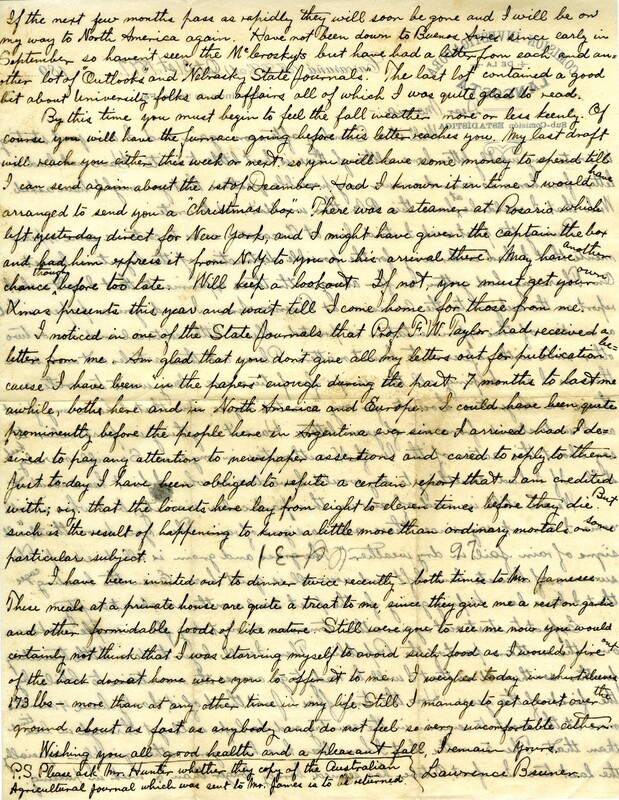 If the next few months pass as rapidly they will soon be gone and I will be on
my way to North America again. Have not been down to Buenos Aires since early in
September so haven't seen the McCroskys but have had a letter from each and an-
other lot of Outlooks and "Nebraska State Journals". The last lot contained a good
bit about University folks and affairs all of which I was quite glad to read.
By this time you must begin to feel the fall weather more or less keenly. Of
course you will have the furnace going before this letter reaches you. My last draft
will reach you either this week or next, so you will have some money to spend till
I can send again about the 1st of December. Had I known it in time I would have
arranged to send you a "Christmas box". There was a steamer at Rosario which
left yesterday direct for New York, and I might have given the captain the box
and had him express it from N.Y. to you on his arrival there. May have another
chance though before too late. Will keep a lookout. If not, you must get your own
Xmas presents this year and wait till I come home for those from me.
I noticed in one of the State Journals that Prof. F. W. Taylor had received a
letter from me. Am glad that you don't give all my letters out for publication be-
cause I have been in the "papers" enough during the past 7 months to last me
awhile, both here and in North America and Europe. I could have been quite
prominently before the people here in Argentina ever since I arrived had I de-
sired to pay any attention to newspaper assertions and cared to reply to them
Just to-day I have been obliged to refute a certain report that I am credited
with; viz, that the locusts here lay from eight to eleven times before they die. But
such is the result of happening to know a little more than ordinary mortals on some
particular subject.
I have been invited out to dinner twice recently - both times to Mr. Jameses
These meals at a private house are quite a treat to me, since they give me a rest on garlic
and other formidable foods of like nature. Still were you to see me now you would
certainly not think that I was starving myself to avoid such food as I would "fire" out
of the back door at home were you to offer it to me. I weighed today in shirt sleeves
173 lbs - more than at any other time in my life. Still I manage to get about over the
ground about as fast as anybody and do not feel so very uncomfortable either.
Wishing you all good health and a pleasant fall, I remain Yours,
Lawrence Bruner.
P.S. Please ask Mr. Hunter whether they copy of the Australian
Agricultural journal which was sent to Mr. James is to be returned